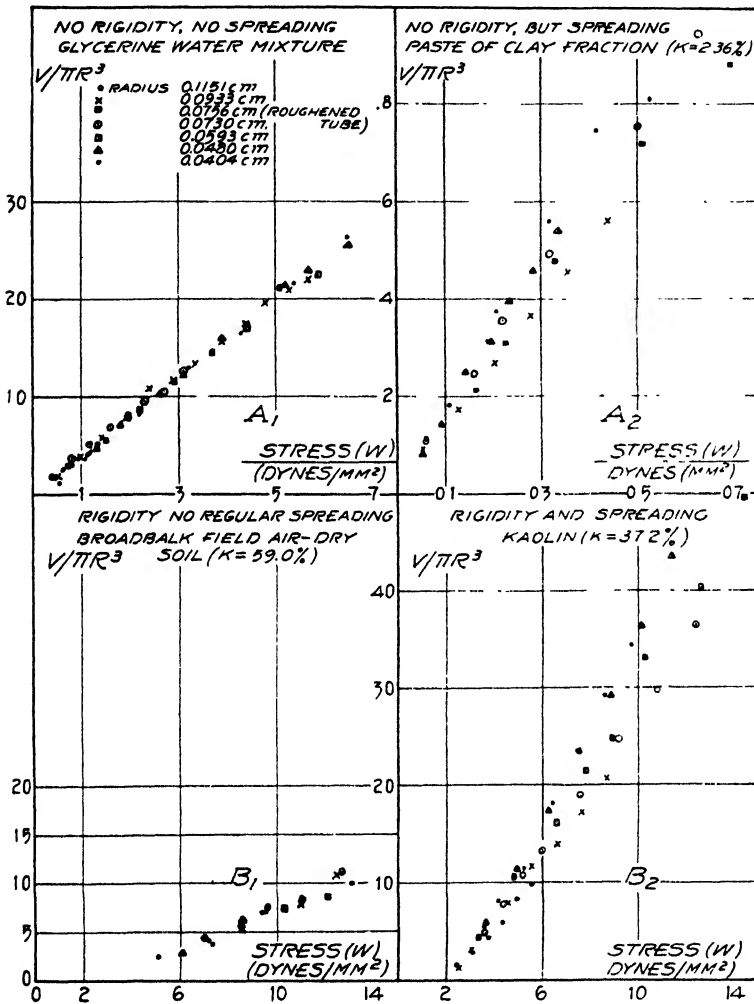 NO RIGIDITY, NO SPREADING
GLYCERINE WATER MIXTURE
V/πR³
• RADIUS 0.1151 cm
x 0.0933 cm
■ 0.0756 cm (ROUGHENED TUBE)
⊙ 0.0730 cm.
◘ 0.0593 cm
▲ 0.0480 cm
• 0.0404 cm
30
20
10
A₁
STRESS (W)
(DYNES/MM²)
1 3 5 7
NO RIGIDITY, BUT SPREADING
PASTE OF CLAY FRACTION (K=2.36%)
V/πR³
.8
.6
.4
.2
A₂
STRESS (W)
DYNES (MM²)
.01 .03 .05 .07
RIGIDITY NO REGULAR SPREADING
BROADBALK FIELD AIR-DRY
SOIL (K=59.0%)
V/πR³
20
15
10
5
0
B₁
STRESS (W)
(DYNES/MM²)
0 2 6 10 14
RIGIDITY AND SPREADING
KAOLIN (K=37.2%)
V/πR³
40
30
20
10
B₂
STRESS (W)
(DYNES/MM²)
2 6 10 14